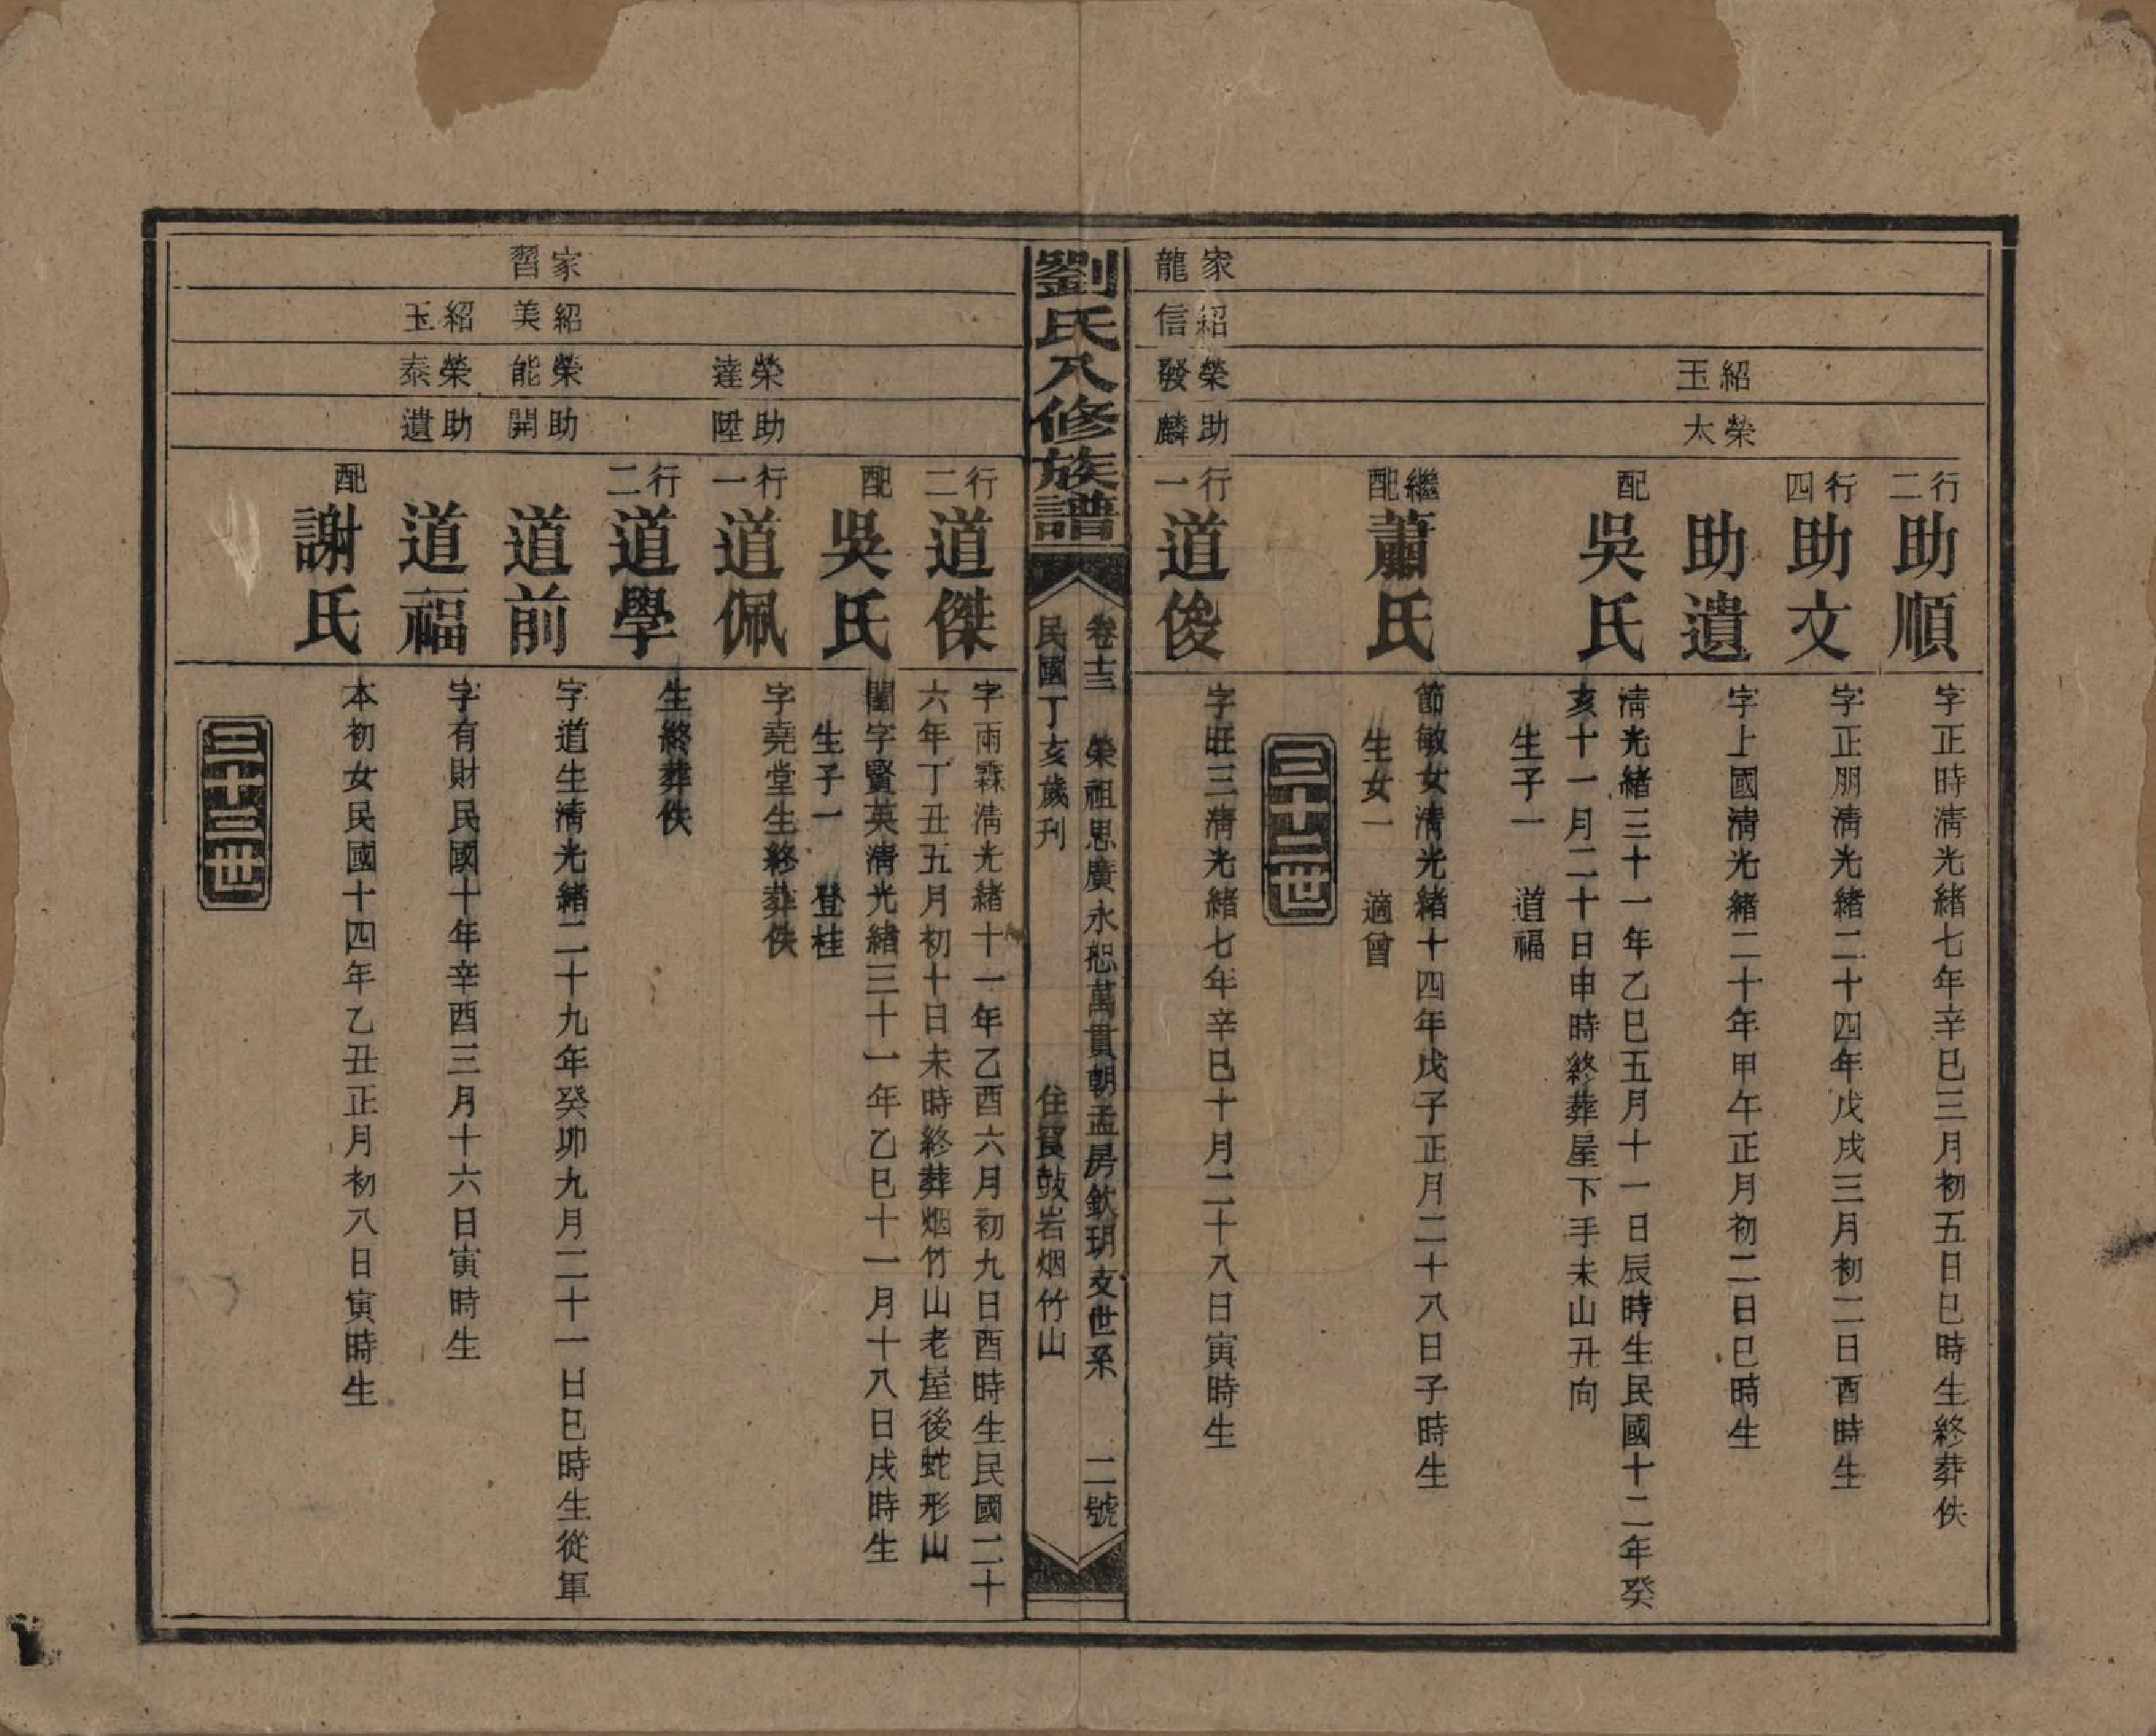 行二
助順
字正時淸光緒七年辛巳三月初五日巳時生終葬佚
行四
助文
字正朋淸光緒二十四年戊戌三月初二日酉時生
紹玉
榮太
助遺
字上國淸光緒二十年甲午正月初二日巳時生
配
吳氏
淸光緒三十一年乙巳五月十一日辰時生民國十二年癸
亥十一月二十日申時終葬屋下手未山丑向
生子一　道福
繼配
蕭氏
節敏女淸光緒十四年戊子正月二十八日子時生
生女一　適曾
三十二世
家龍
紹信
榮發
助麟
行一
道俊
字旺三淸光緒七年辛巳十月二十八日寅時生
劉氏八修族譜
卷十三　榮祖思廣永恕萬貫朝孟房欽玥支世系　二號
民國丁亥歲刊　住鼓岩烟竹山
行二
道傑
字雨霖淸光緒十一年乙酉六月初九日酉時生民國二十
六年丁丑五月初十日未時終葬烟竹山老屋後蛇形山
配
吳氏
閨字賢英淸光緒三十一年乙巳十一月十八日戌時生
生子一　登桂
榮達
助陞
行一
道佩
字堯堂生終葬佚
行二
道學
生終葬佚
家習
紹美
榮能
助開
道前
字道生淸光緒二十九年癸卯九月二十一日巳時生從軍
紹玉
榮泰
助遺
道福
字有財民國十年辛酉三月十六日寅時生
配
謝氏
本初女民國十四年乙丑正月初八日寅時生
三十三世